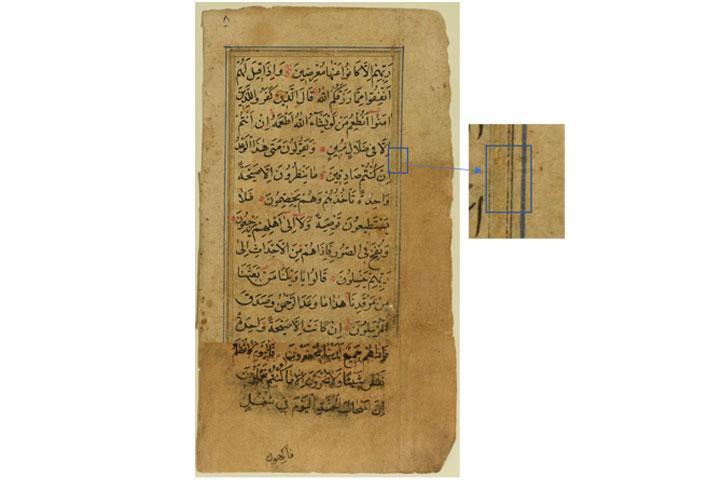 ٨
رَبِّهِمْ اِلَّا كَانُوا عَنْهَا مُعْرِضِينَ وَاِذَا قِيلَ لَهُمْ
اَنْفِقُوا مِمَّا رَزَقَكُمُ اللهُ قَالَ الَّذِينَ كَفَرُوا لِلَّذِينَ
اٰمَنُوا اَنُطْعِمُ مَنْ لَوْ يَشَاءُ اللهُ اَطْعَمَهُ اِنْ اَنْتُمْ
اِلَّا فِى ضَلَالٍ مُبِينٍ وَيَقُولُونَ مَتٰى هٰذَا الْوَعْدُ
اِنْ كُنْتُمْ صَادِقِينَ مَا يَنْظُرُونَ اِلَّا صَيْحَةً
وَاحِدَةً تَأْخُذُهُمْ وَهُمْ يَخِصِّمُونَ فَلَا
يَسْتَطِيعُونَ تَوْصِيَةً وَلَا اِلٰى اَهْلِهِمْ يَرْجِعُونَ
وَنُفِخَ فِى الصُّورِ فَاِذَاهُمْ مِنَ الْاَجْدَاثِ اِلٰى
رَبِّهِمْ يَنْسِلُونَ قَالُوا يَا وَيْلَنَا مَنْ بَعَثَنَا
مِنْ مَرْقَدِنَا هٰذَا مَا وَعَدَ الرَّحْمٰنُ وَصَدَقَ
الْمُرْسَلُونَ اِنْ كَانَتْ اِلَّا صَيْحَةً وَاحِدَةً
فَاِذَاهُمْ جَمِيعٌ لَدَيْنَا مُحْضَرُونَ فَالْيَوْمَ لَا تُظْلَمُ
نَفْسٌ شَيْئًا وَلَا تُجْزَوْنَ اِلَّا مَا كُنْتُمْ تَعْمَلُونَ
اِنَّ اَصْحَابَ الْجَنَّةِ الْيَوْمَ فِي شُغُلٍ
فاكهون